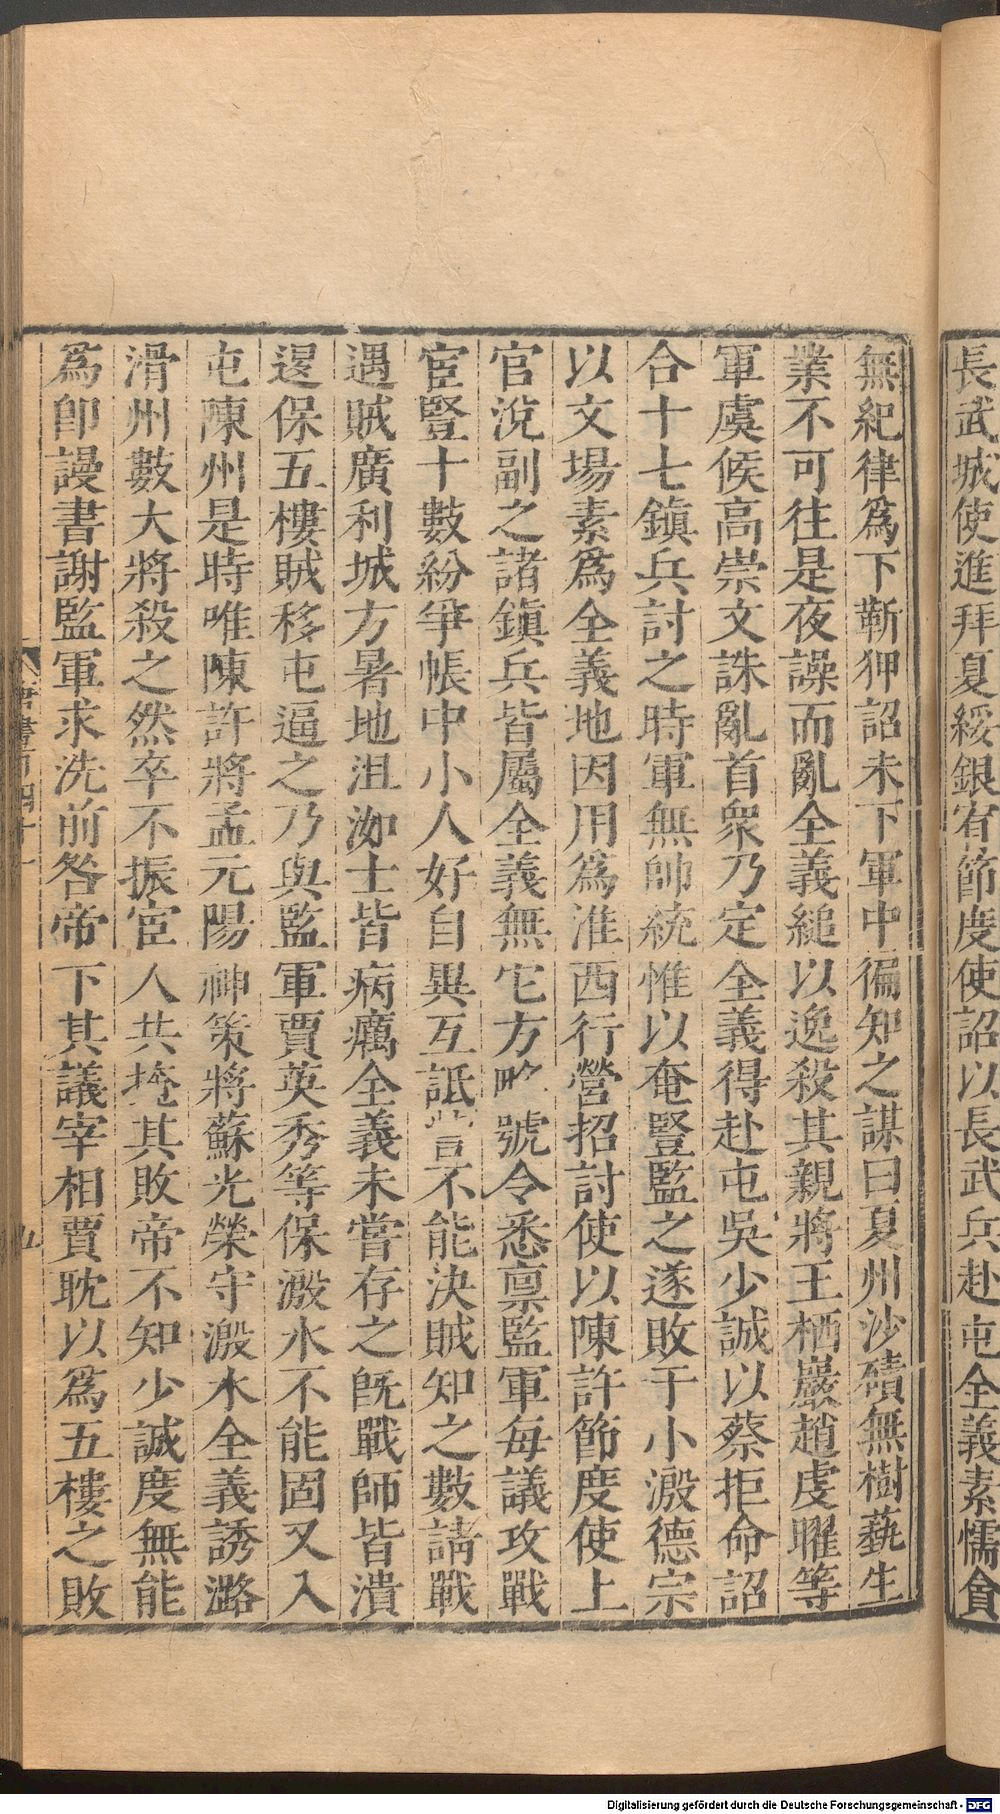 長武城使進拜夏綏銀宥節度使詔以長武兵赴屯全義素懦貪
無紀律爲下靳狎詔未下軍中徧知之謀曰夏州沙磧無樹蓺生
業不可往是夜譟而亂全義縋以逸殺其親將王栖巖趙虔曜等
軍虞候高崇文誅亂首衆乃定全義得赴屯吳少誠以蔡拒命詔
合十七鎭兵討之時軍無帥統惟以奄豎監之遂敗于小溵德宗
以文場素爲全義地因用爲淮西行營招討使以陳許節度使上
官涗副之諸鎭兵皆屬全義無它方略號令悉稟監軍每議攻戰
宦豎十數紛爭帳中小人好自異互詆訾不能決賊知之數請戰
遇賊廣利城方暑地沮洳士皆病癘全義未嘗存之旣戰師皆潰
退保五樓賊移屯逼之乃與監軍賈英秀等保溵水不能固又入
屯陳州是時唯陳許將孟元陽神策將蘇光榮守溵水全義誘潞
滑州數大將殺之然卒不振宦人共掩其敗帝不知少誠度無能
爲卽謾書謝監軍求洗前咎帝下其議宰相賈耽以爲五樓之敗
唐書百四十一
九
Digitalisierung gefördert durch die Deutsche Forschungsgemeinschaft - DFG